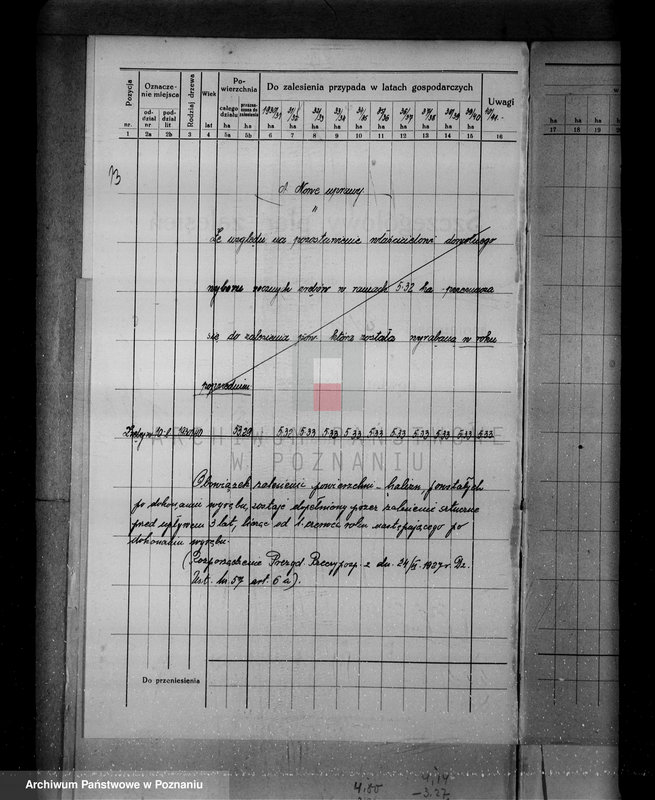 Pozycja
Oznacze-
nie miejsca
Rodzaj drzewa
Wiek
Po-
wierzchnia
Do zalesienia przypada w latach gospodarczych
Uwagi
od-
dział
nr
pod-
dział
lit
całego
działu
przezna-
czona do
zalesienia
1930/31 31/32 32/33 33/34 34/35 35/36 36/37 37/38 38/39 39/40 40/41
nr. lat ha ha ha ha ha ha ha ha ha ha ha ha
1 2a 2b 3 4 5a 5b 6 7 8 9 10 11 12 13 14 15 16
ha ha ha
17 18 19
A. Nowe uprawy
Ze względu na pozostawienie właścicielowi dowolnego
wyboru rocznych zrębów w ramach 5.32 ha przeznacza
się do zalesienia pow. która została wyrąbana w roku
poprzednim
53.29 5.32 5.33 5.33 5.33 5.33 5.33 5.33 5.33 5.33 5.33
Obowiązek zalesienia powierzchni - halizn powstałych
po dokonaniu wyrębu, zostaje dopełniony przez zalesienie sztuczne
przed upływem 3 lat, licząc od 1. czerwca roku następującego po
dokonaniu wyrębu.
(Rozporządzenie Prezyd. Rzeczyposp. z dn. 24/VI. 1927 r. Dz.
Ust. Nr. 57 art. 6 a).
Do przeniesienia
ARCHIWUM PAŃSTWOWE
W POZNANIU
Archiwum Państwowe w Poznaniu
4,14
4,00 -3.27